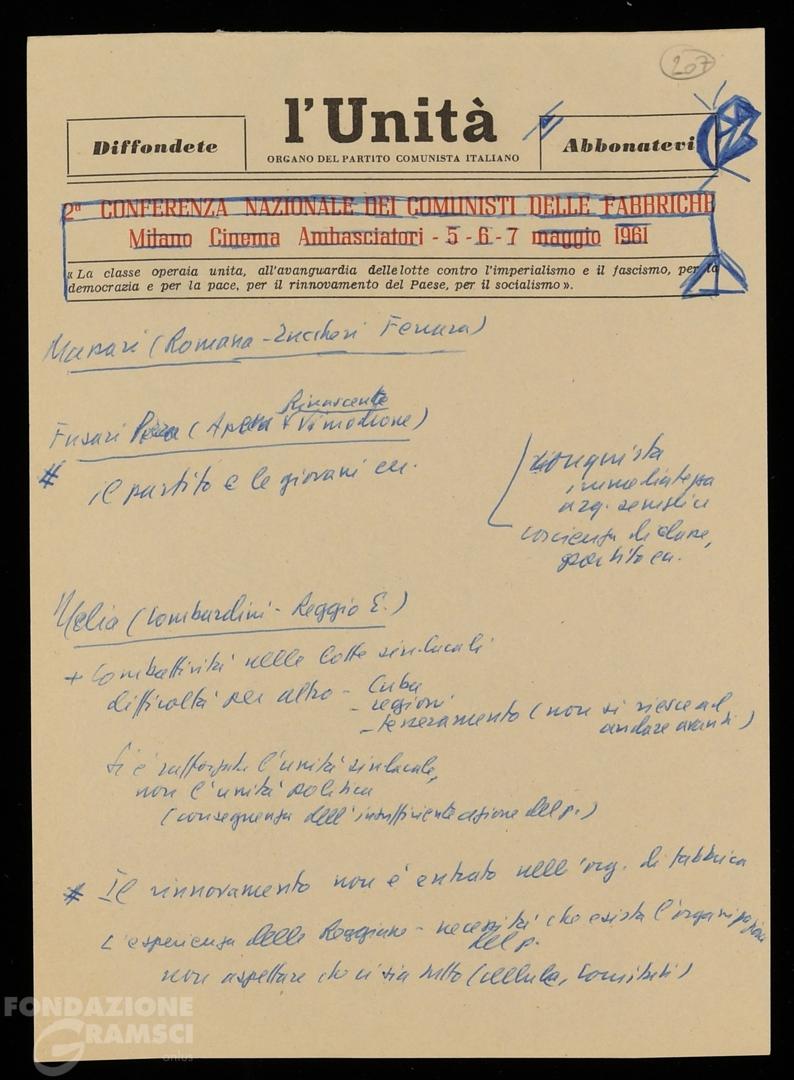 207
Diffondete
l'Unità
ORGANO DEL PARTITO COMUNISTA ITALIANO
Abbonatevi
2ª CONFERENZA NAZIONALE DEI COMUNISTI DELLE FABBRICHE
Milano Cinema Ambasciatori - 5 - 6 - 7 maggio 1961
« La classe operaia unita, all'avanguardia delle lotte contro l'imperialismo e il fascismo, per la
democrazia e per la pace, per il rinnovamento del Paese, per il socialismo ».
(Romana - Zuccheri Ferrara)
Rinascente
Fusari
# il partito e le giovani
conquista
immediatezza
org. semplice
coscienza di classe,
partito
(Lombardini - Reggio E.)
+ combattività nelle lotte sindacali
difficoltà per altro - Cuba
- regioni
- tesseramento (non si riesce ad
andare avanti)
Si è rafforzata l'unità sindacale,
non l'unità politica
(conseguenza dell'insufficiente azione del p.)
# Il rinnovamento non è entrato nell'org. di fabbrica
L'esperienza delle Reggiane - necessità che esista l'organizzazione
del p.
non aspettare che ci sia tutto (cellula, comitati)
FONDAZIONE
GRAMSCI
onlus